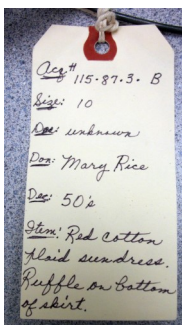 Acq# 115.87.3. B
Size: 10
Doe: unknown
Don: Mary Rice
Dec: 50's
Item: Red cotton
plaid sundress.
Ruffle on bottom
of skirt.